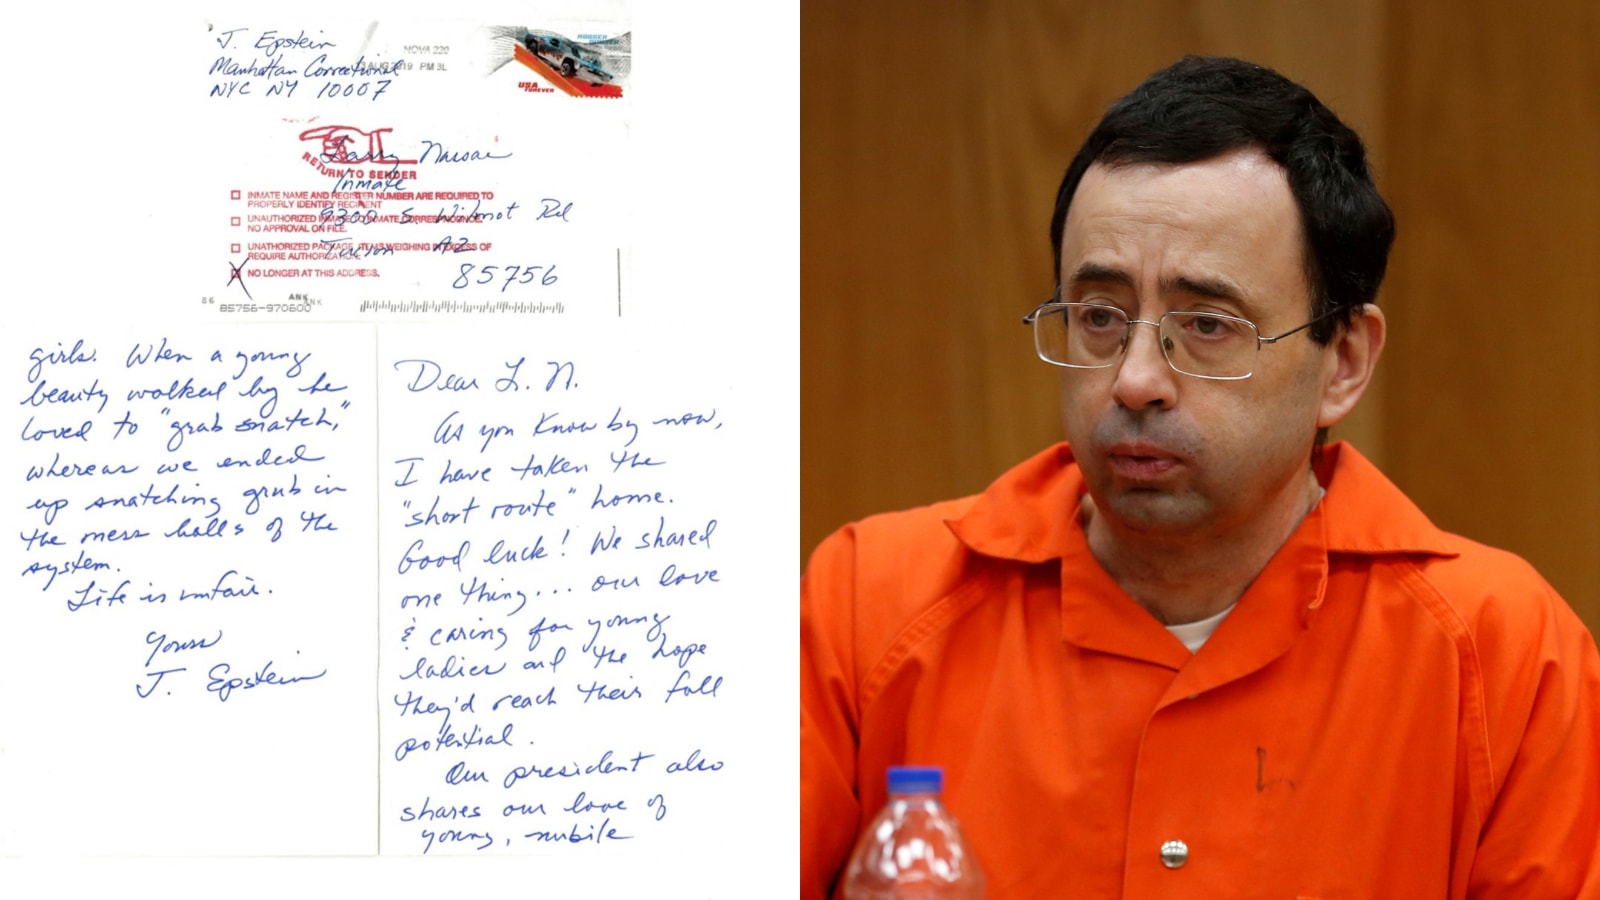 J. Epstein
Manhattan Correctional
NYC NY 10007
NOVA 220
AUG 2019 PM 3L
USA
FOREVER
Larry Nassar
RETURN TO SENDER
Inmate
INMATE NAME AND REGISTER NUMBER ARE REQUIRED TO
PROPERLY IDENTIFY RECIPIENT
9300 S. Wilmot Rd
UNAUTHORIZED INMATE TO INMATE CORRESPONDENCE,
NO APPROVAL ON FILE.
Tucson AZ
UNATHORIZED PACKAGE, ITEMS WEIGHING IN EXCESS OF
REQUIRE AUTHORIZATION.
85756
NO LONGER AT THIS ADDRESS.
86
ANK
85756-970600
Dear L. N.
As you know by now,
I have taken the
"short route" home.
Good luck! We shared
one thing... our love
& caring for young
ladies and the hope
they'd reach their full
potential.
Our president also
shares our love of
young, nubile
girls. When a young
beauty walked by he
loved to "grab snatch,"
whereas we ended
up snatching grub in
the mess halls of the
system.
Life is unfair.
Yours
J. Epstein